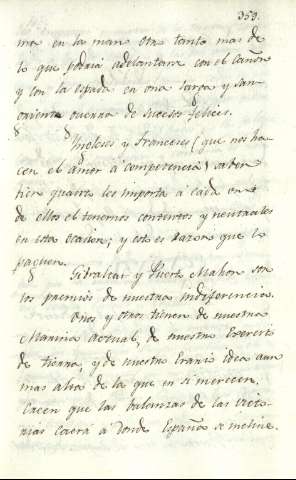 359.
ma en la mano otro tanto mas de
lo que podria adelantarse con el Cañon
y con la espada en una larga y san-
grienta guerra de sucesos felices.
§ Yngleses y Franceses (que nos ha-
cen el amor á competencia) saben
bien quanto les importa á cada uno
de ellos el tenernos contentos y neutrales
en esta ocasion; y esto es razon que lo
paguen.
§ Gibraltar y Puerto Mahon son
los premios de nuestra indiferencia.
Unos y otros tienen de nuestra
Marina actual, de nuestro Exercito
de tierra, y de nuestro Erario idea aun
mas alta de la que en si merecen.
Creen que las balanzas de las victo-
rias caerá á donde España se incline.